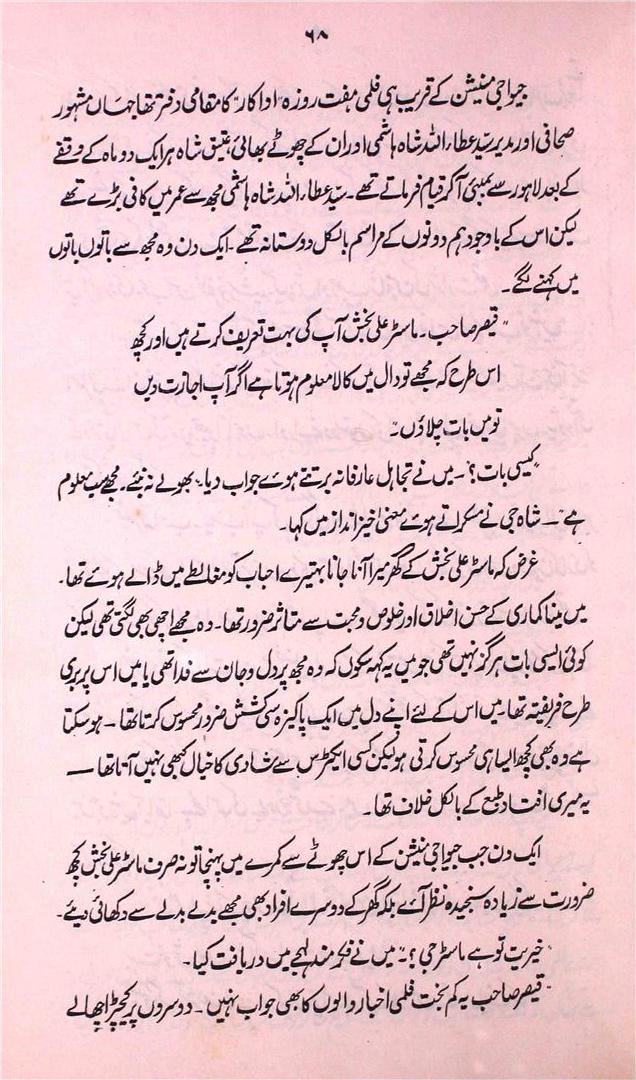 ۶۸
جیواجی منیشن کے قریب ہی فلمی ہفت روزہ "اداکار" کا مقامی دفتر تھا جہاں مشہور
صحافی اور مدیر سیّد عطاء اللہ شاہ ہاشمی اور ان کے چھوٹے بھائی عتیق شاہ ہر ایک دو ماہ کے وقفے
کے بعد لاہور سے بمبئی آ کر قیام فرماتے تھے۔ سیّد عطاء اللہ شاہ ہاشمی مجھ سے عمر میں کافی بڑے تھے
لیکن اس کے باوجود ہم دونوں کے مراسم بالکل دوستانہ تھے۔ ایک دن وہ مجھ سے باتوں باتوں
میں کہنے لگے۔
"قیصر صاحب۔ ماسٹر علی بخش آپ کی بہت تعریف کرتے ہیں اور کچھ
اس طرح کہ مجھے تو دال میں کالا معلوم ہوتا ہے اگر آپ اجازت دیں
تو میں بات چلاؤں"۔
"کیسی بات؟"۔ میں نے تجاہل عارفانہ برتتے ہوئے جواب دیا۔ بھولے نہ بنئے۔ مجھے سب معلوم
ہے" — شاہ جی نے مسکراتے ہوئے معنی خیز انداز میں کہا۔
غرض کہ ماسٹر علی بخش کے گھر میرا آنا جانا بہتیرے احباب کو مغالطے میں ڈالے ہوئے تھا۔
میں مینا کماری کے حسن اخلاق اور خلوص و محبت سے متاثر ضرور تھا۔ وہ مجھے اچھی بھی لگتی تھی لیکن
کوئی ایسی بات ہرگز نہیں تھی جو میں یہ کہہ سکوں کہ وہ مجھ پر دل و جان سے فدا تھی یا میں اس پر بری
طرح فریفتہ تھا۔ میں اس کے لئے اپنے دل میں ایک پاکیزہ سی کشش ضرور محسوس کرتا تھا۔ ہو سکتا
ہے وہ بھی کچھ ایسا ہی محسوس کرتی ہو لیکن کسی ایکٹرس سے شادی کا خیال کبھی نہیں آتا تھا —
یہ میری افتاد طبع کے بالکل خلاف تھا۔
ایک دن جب جیواجی منیشن کے اس چھوٹے سے کمرے میں پہنچا تو نہ صرف ماسٹر علی بخش کچھ
ضرورت سے زیادہ سنجیدہ نظر آئے بلکہ گھر کے دوسرے افراد بھی مجھے بدلے بدلے سے دکھائی دیئے۔
"خیریت تو ہے ماسٹر جی؟"۔ میں نے فکر مند لہجے میں دریافت کیا۔
"قیصر صاحب یہ کم بخت فلمی اخبار والوں کا بھی جواب نہیں۔ دوسروں پر کیچڑ اچھالے